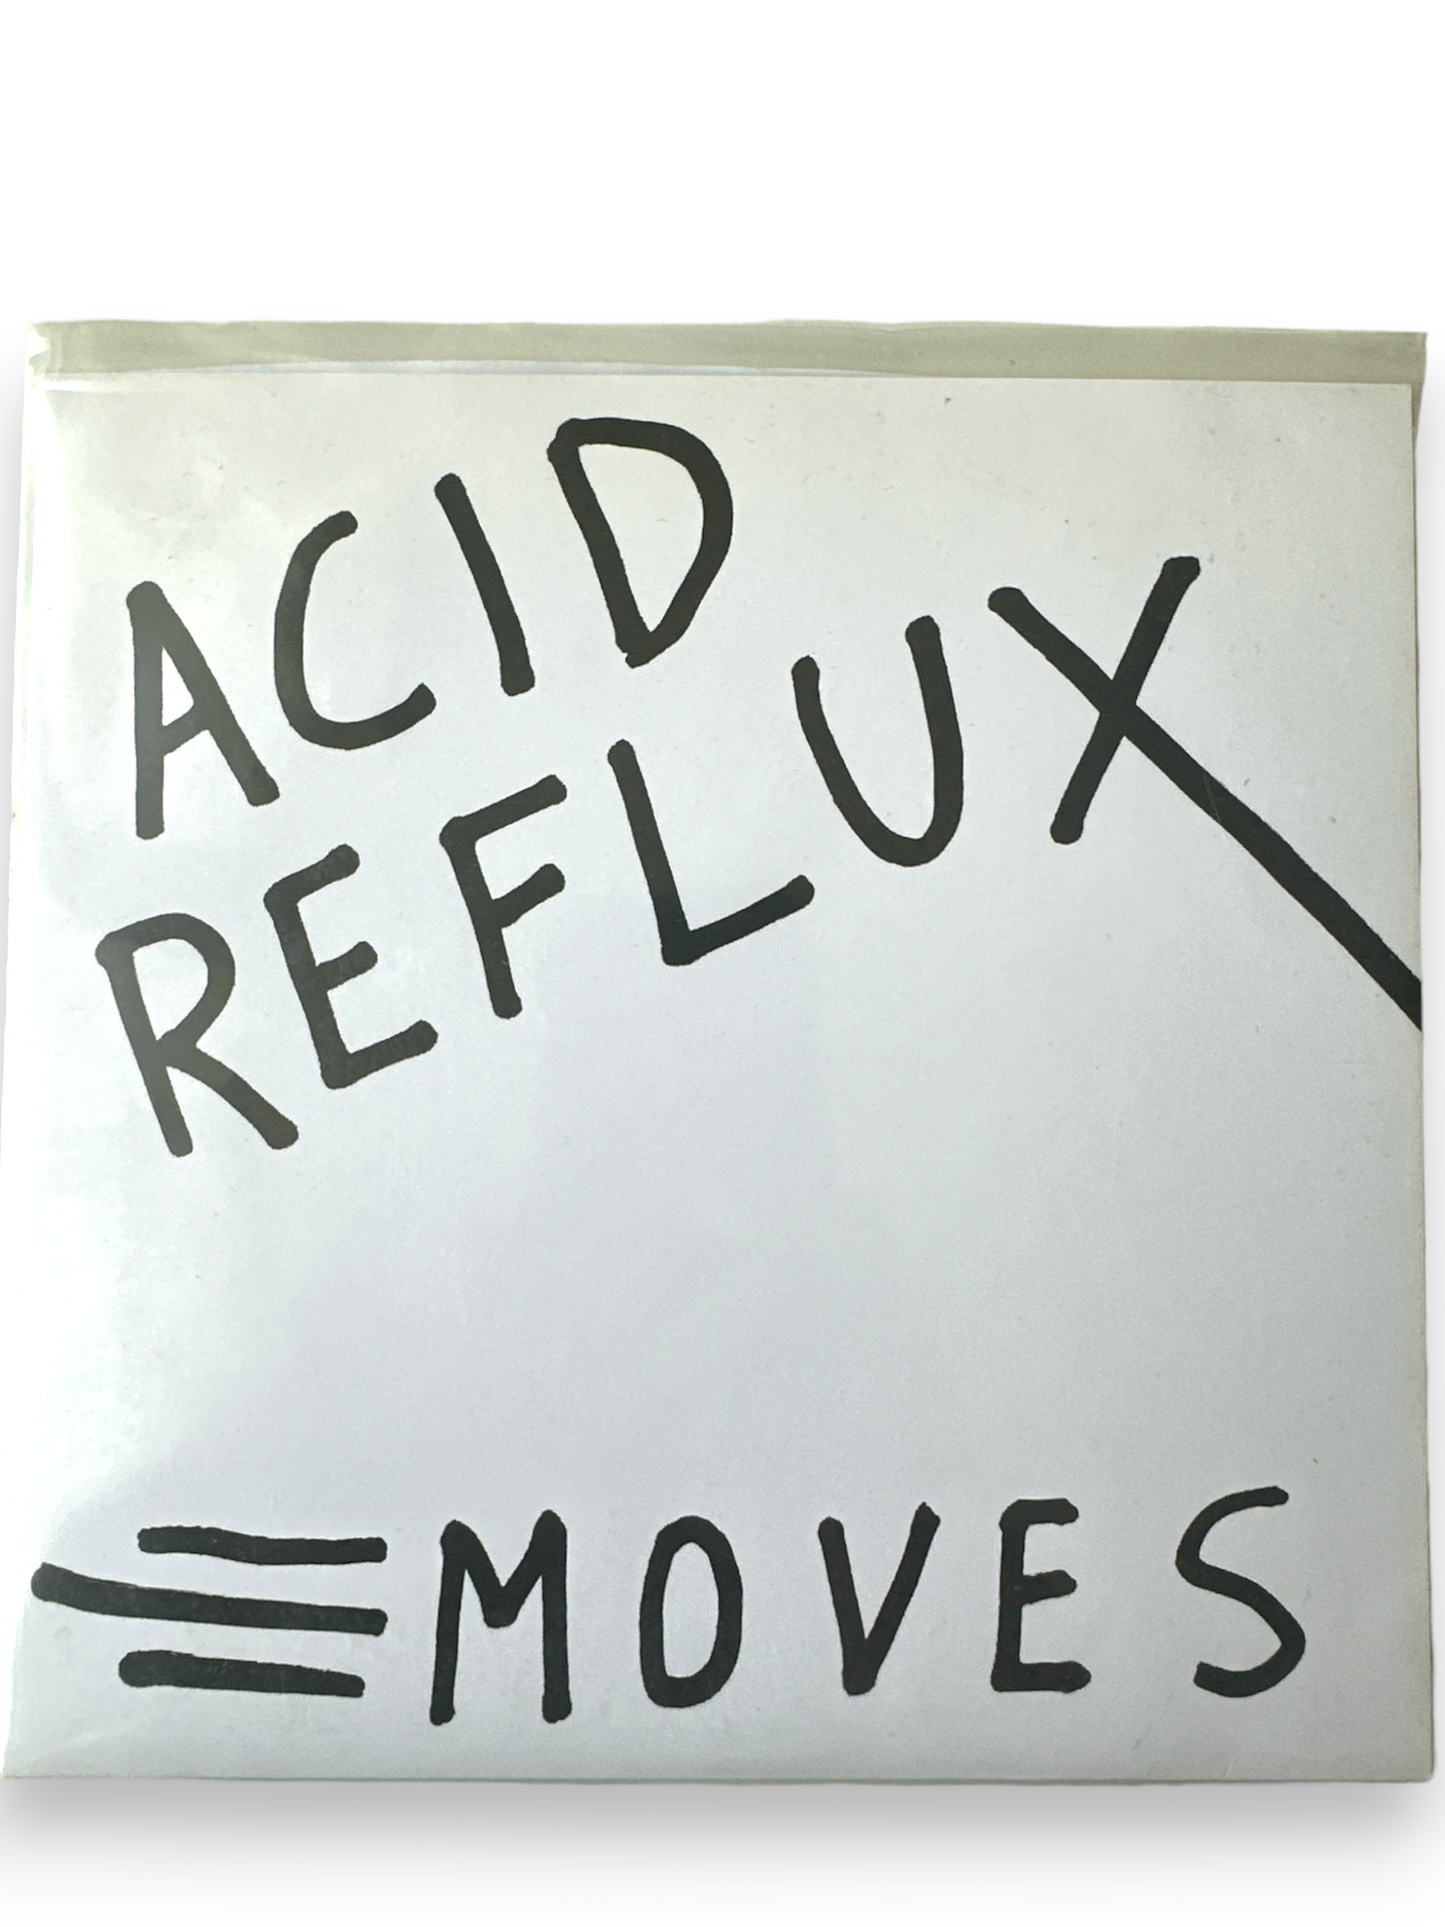 ACID
REFLUX
MOVES